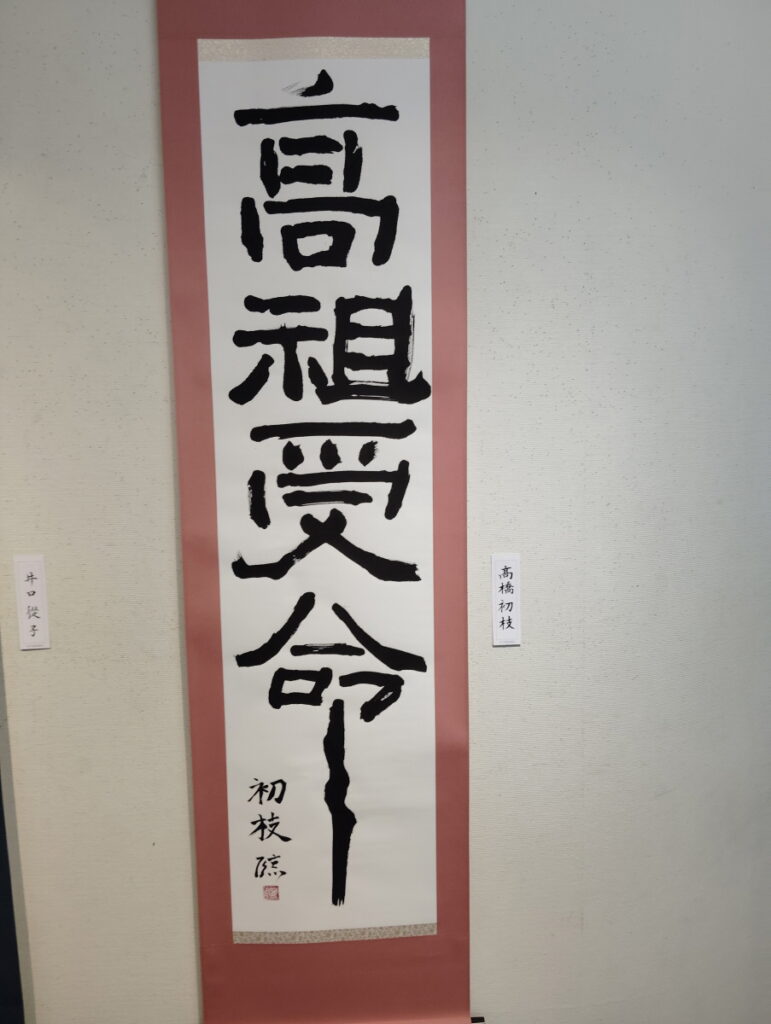 高祖受命
初枝臨
高橋初枝
井口從子